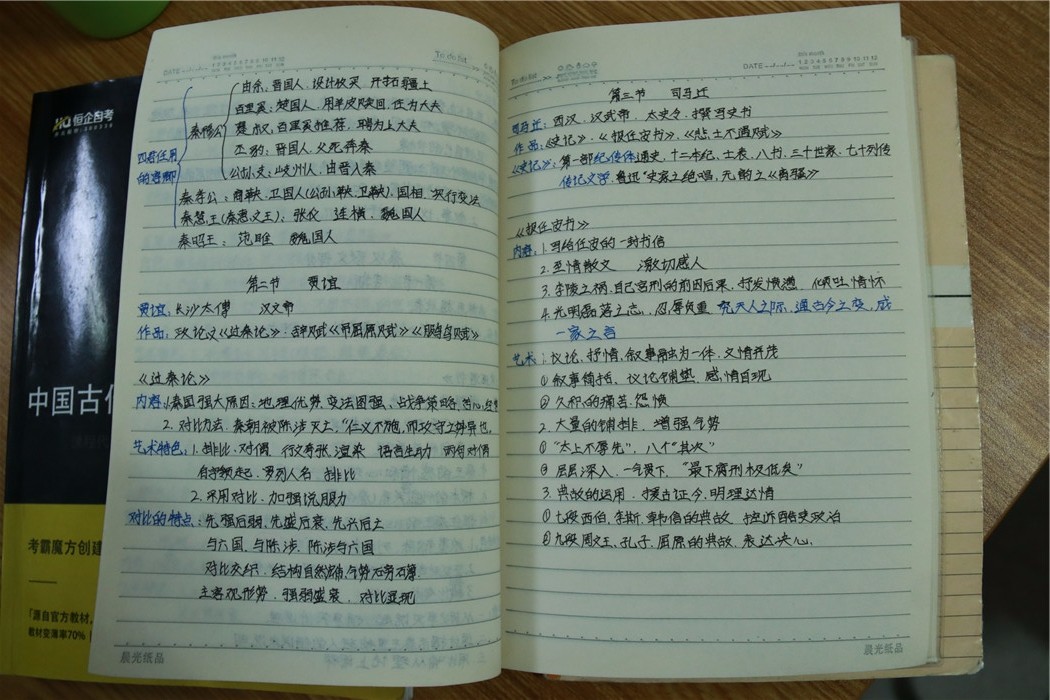 由余，晋国人，设计收买 开拓疆土
百里奚：楚国人，用羊皮赎回，任为大夫
秦穆公
蹇叔，百里奚推荐，聘为上大夫
四君任用
的客卿
丕豹：晋国人，父死奔秦
公孙支：岐州人，由晋入秦
秦孝公：商鞅，卫国人（公孙鞅、卫鞅），国相，执行变法
秦惠王（秦惠文王）：张仪 连横，魏国人
秦昭王：范雎 魏国人
第二节 贾谊
贾谊：长沙太傅 汉文帝
作品：政论文《过秦论》、辞赋《吊屈原赋》《鵩鸟赋》
《过秦论》
内容：1.秦国强大原因：地理优势、变法图强、战争策略
2.对比方法：秦朝被陈涉灭亡，“仁义不施，而攻守之势异也
艺术特色：1.排比、对偶 行文夸张，渲染 语言生动
句 排比
2.采用对比，加强说服力
对比的特点：先强后弱，先盛后衰，先兴后亡
与六国，与陈涉，陈涉与六国
对比交织，结构自然
主客观形势，强弱盛衰，对比显现
晨光纸品
第三节 司马迁
司马迁：西汉，汉武帝，太史令，撰写史书
作品：《史记》、《报任安书》、《悲士不遇赋》
《史记》：第一部纪传体通史，十二本纪、十表、八书、三十世家、七十列传
传记文学，鲁迅“史家之绝唱，无韵之《离骚》
《报任安书》
内容：1.写给任安的一封书信
2.至情散文 激切感人
3.李陵之祸，自己宫刑的前因后果，抒发愤懑、倾吐情怀
4.光明磊落之志，忍辱负重 究天人之际，通古今之变，成
一家之言
艺术：1.议论、抒情、叙事融为一体，文情并茂
①叙事简括、议论铺垫，感情自现
②久积的痛苦、怨愤
2.大量的铺排，增强气势
①“太上不辱先”，八个“其次”
②层层深入，一气贯下，“最下腐刑极矣”
3.典故的运用，援古证今，明理达情
①七段西伯、李斯、韩信的典故，控诉酷吏政治
②九段周文王、孔子、屈原的典故，表达决心
晨光纸品
恒企自考
中国古代
考霸魔方创建
「源自官方教材，
教材变薄率70%